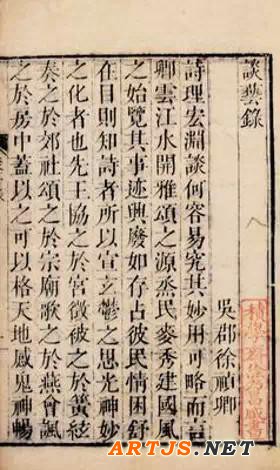 談藝錄
吳郡徐禎卿
詩理宏淵談何容易究其妙用可略而言
卿雲江水開雅頌之源烝民麥秀建國風
之始覽其事迹興廢如存占彼民情困舒
在目則知詩者所以宣玄鬱之思光神妙
之化者也先王協之於宮徵被之於簧絃
奏之於郊社頌之於宗廟歌之於燕會諷
之於房中蓋以之可以格天地感鬼神暢
積學齋徐乃昌藏書
ARTJS.NET